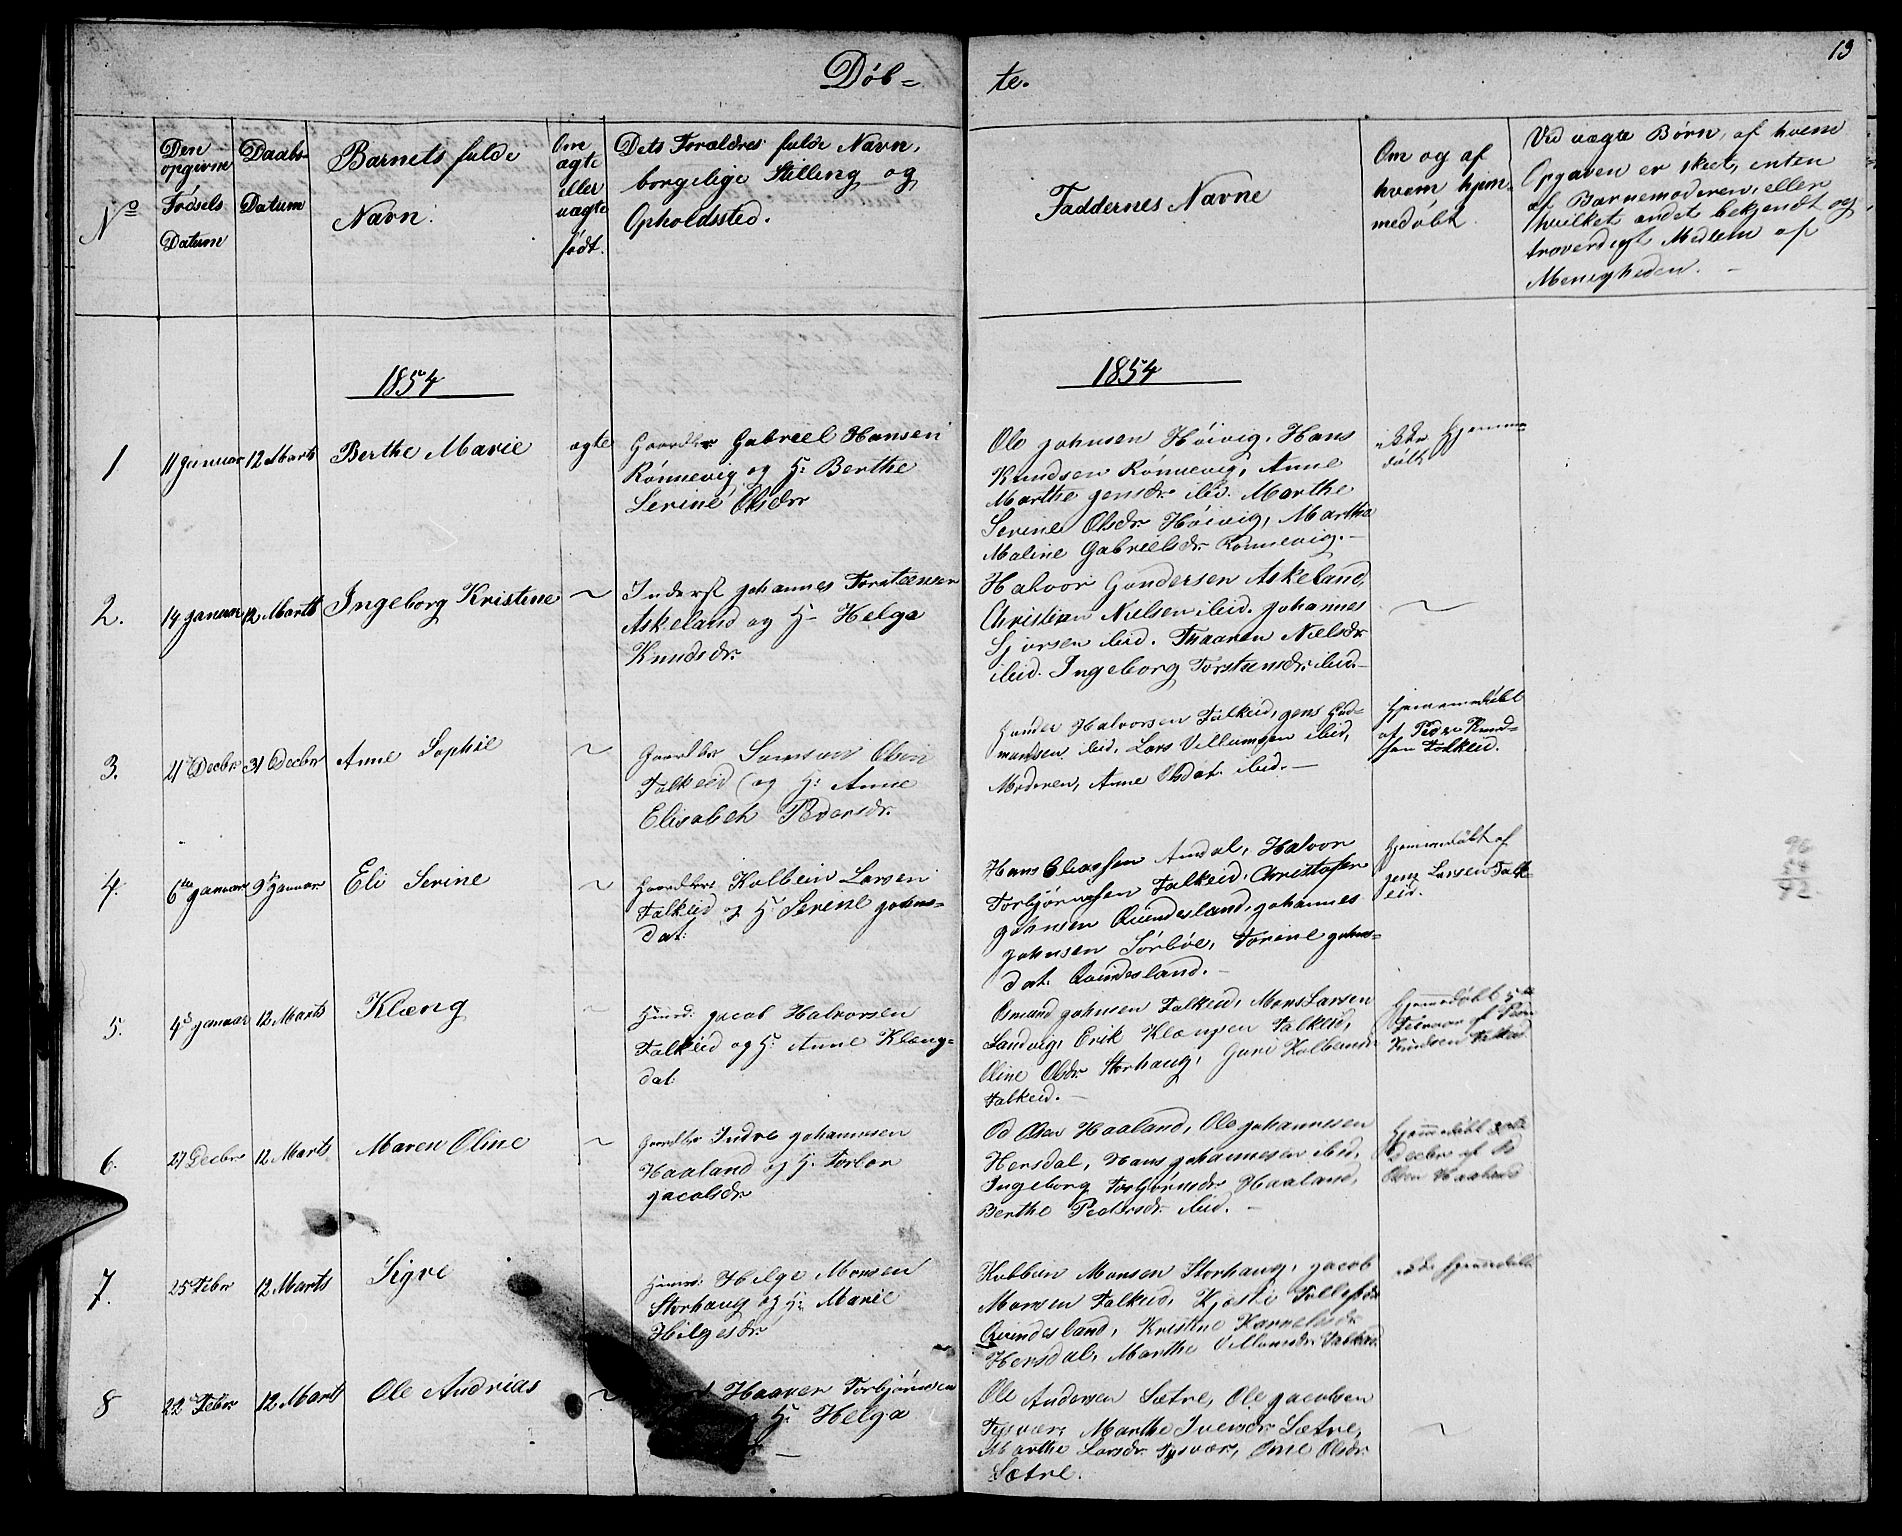 13
Døb=
te.
No
Den opgivne Fødsels Datum
Daabs-Datum
Barnets fulde Navn.
Om ægte eller uægte født.
Dets Forældres fulde Navn, borgelige Stilling og Opholdssted.
Faddernes Navne
Om og af hvem hjemmedøbt.
Ved uægte Børn, af hvem Opgaven er skeet, enten af Barnemoderen, eller hvilket andet bekjendt og troverdigt Medlem af Menigheden. -
1854
1854
1
11 Januar
12 Marts
Berthe Marie
ægte
Gaardbr Gabriel Hansen
Rønnevig og H: Berthe
Serine Olsdr
Ole Johnsen Høivig, Hans
Knudsen Rønnevig, Anne
Marthe Jensdr. ibid. Marthe
Serene Olsdr. Høivig, Martha
Maline Gabrielsdr. Rønnevig. -
ikke Hjemme-
døbt
2.
14 Januar
12 Marts
Ingeborg Kristine
~
Inderst Johannes Torsteensen
Askeland og H- Helga
Knudsdr.
Halvor Gundersen Askeland,
Christian Nielsen ibid. Johannes
Sjursen ibid. Maaren Nielsdr.
ibid. Ingeborg Torsteensdr. ibid. -
~
3.
21 Decbr
31 Decbr
Anne Sophie
~
Gaardbr Samson Olsen
Falkeid og H: Anne
Elisabeth Pedersdr.
Halvorsen Falkeid, Jens Gud-
mundsen ibid, Lars Villumsen ibid,
Moderen, Anne Olsdat. ibid. -
Hjemmedøbt
af Peder Knud-
sen Falkeid.
4.
6te Januar
9de Januar
Eli Serine
~
Gaardbr Kolbein Larsen
Falkeid og H: Serene Johns-
dat:
Hans Andal, Halvor
Torbjørnsen Falkeid, Christofer
Johnsen Qvindesland, Johannes
Johnsen Sørbøe, Torine Johns-
dat. Qvindesland. -
Hjemmedøbt af
Jens Larsen Falk-
eid.
96
92
5.
4de Januar
12 Marts
Klæng
~
Huusm: Jacob Halvorsen
Falkeid og H: Anne Klæng-
dat:
Osmund Johnsen Falkeid, Mons Larsen
Sandvig, Erik Klængsen Falkeid,
Oline Olsdr. Storhaug, Guri Kolbeinsdr.
Falkeid. -
Hjemmedøbt 5te
Februar af Peder
Knudsen Falkeid
6.
27 Decbr
12 Marts
Maren Oline
~
Gaardbr Indre Johannesen
Haaland og H. Torbor
Jacobsdr
Od Olsen Haaland, Ole Johannessen
Hersdal, Hans Johannesen ibid,
Ingeborg Torbjørnsdr. Haaland,
Berthe Pedersdr. ibid. -
Hjemmedøbt
Decbr af Od
Olsen Haaland
7.
25 Febr
12 Marts
Sigve
Huusm: Helge Monsen
Storhaug og H: Marie
Helgesdr.
Kolbein Monsen Storhaug, Jacob
Monsen Falkeid, Kjøstie Tollefsdr
Qvindesland, Kristine Karneliusdr.
Hersdal, Marthe Villumsdr. Falkeid
ikke Hjemmedøbt
8
22 Febr
12 Marts
Ole Andreas
~
Haaver Torbjørnsen
H: Helga
Ole Andersen Sætre, Ole Jacobsen
Tysvær, Marthe Iversdr. Sætre,
Marthe Larsdr. Tysvær, Olsdr.
Sætre.
~